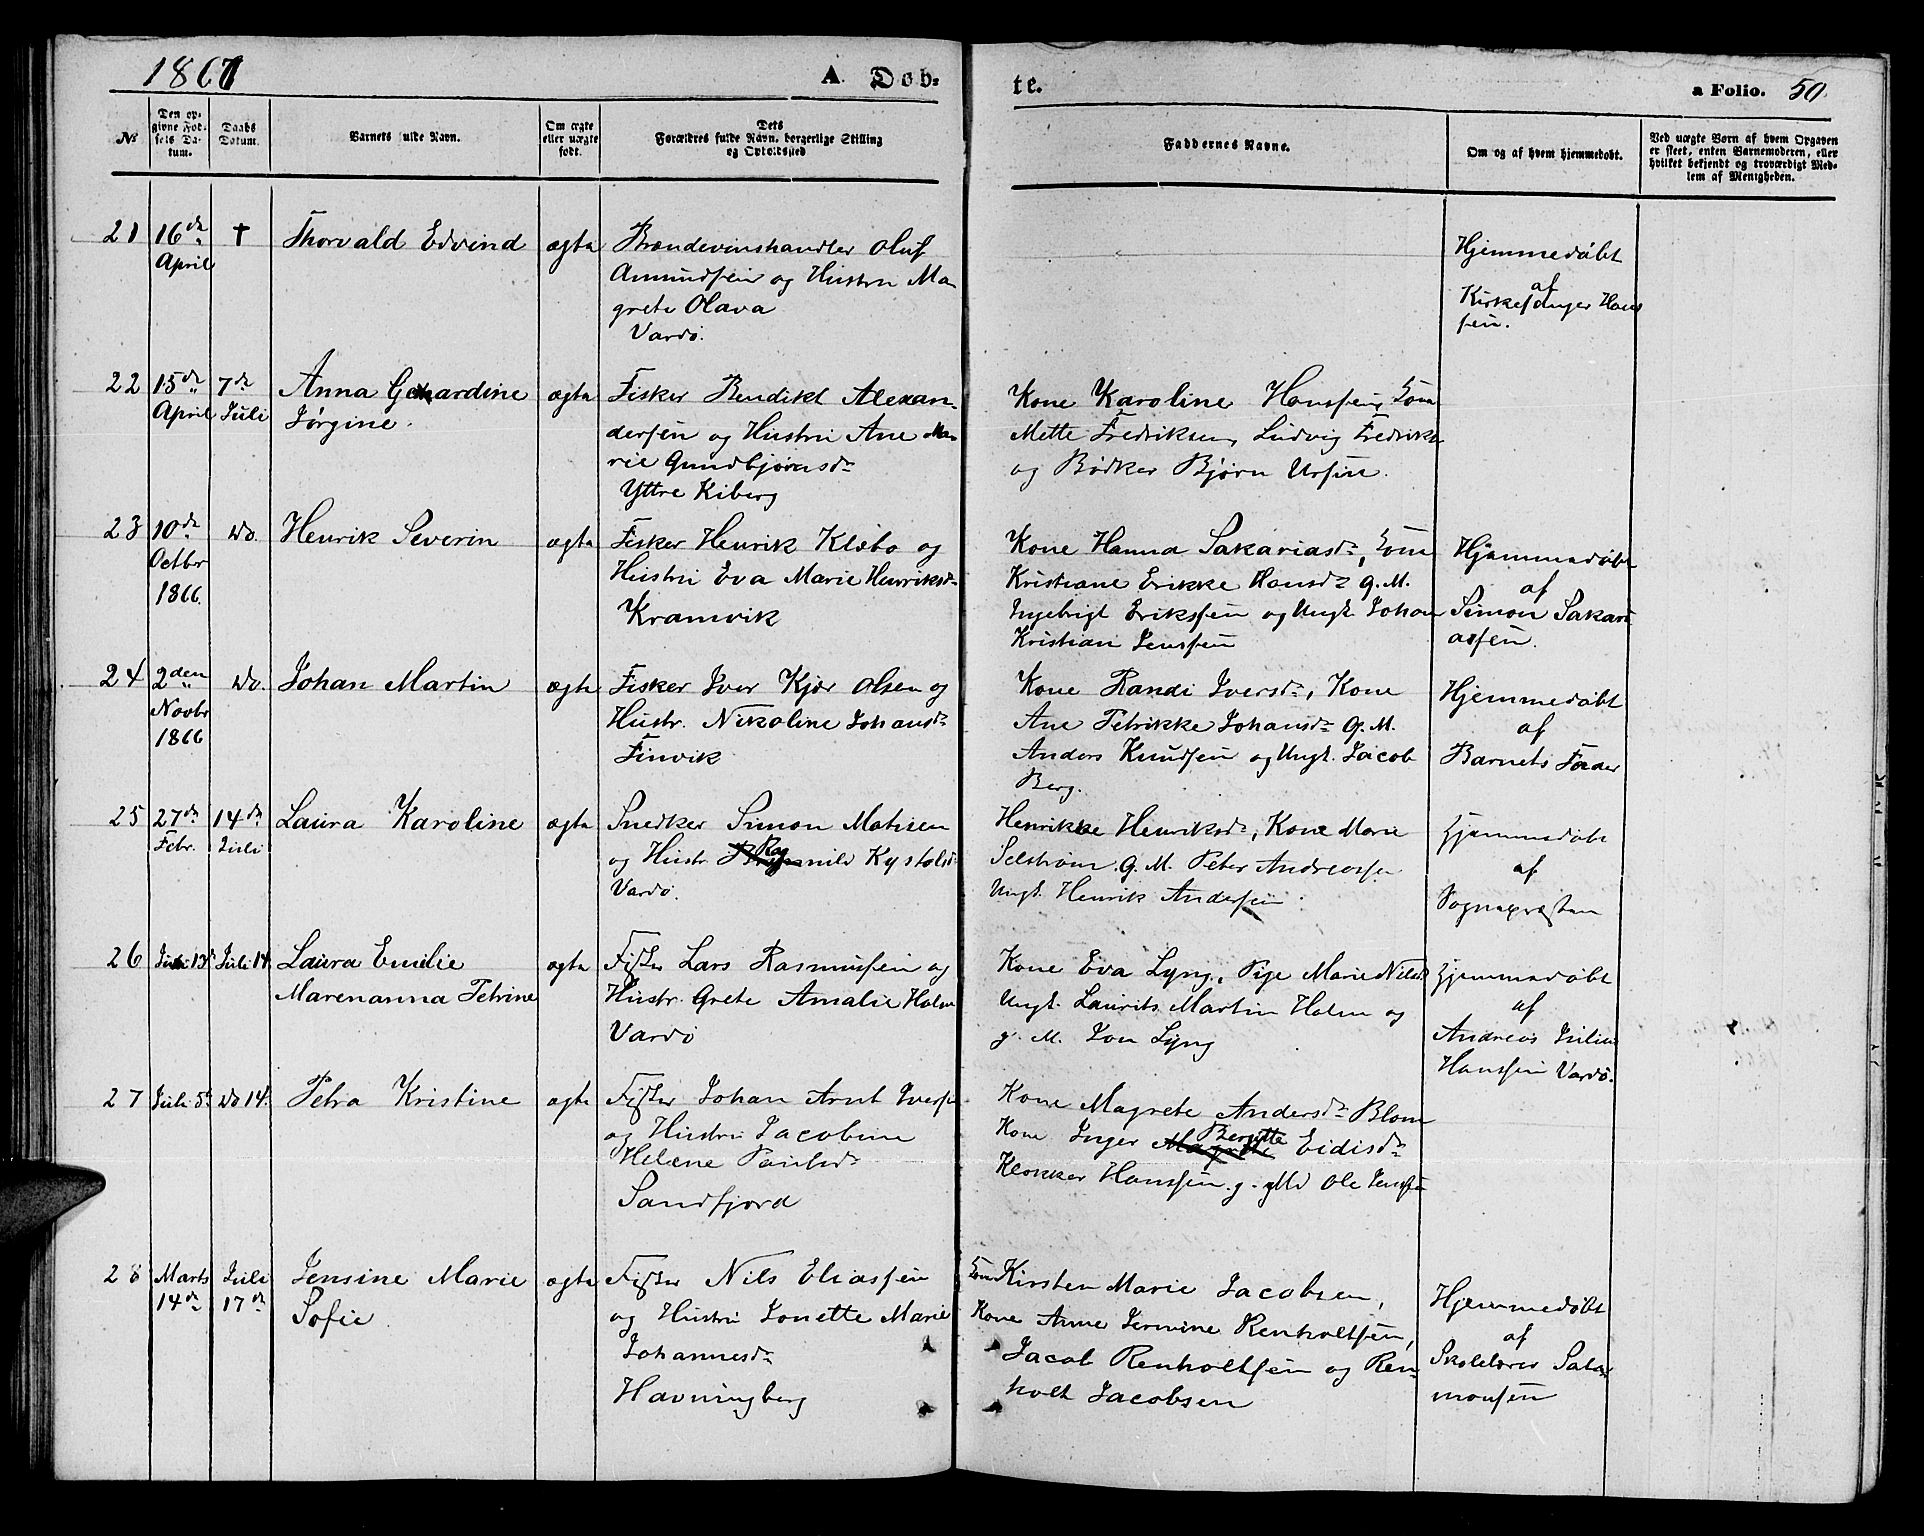 1867
A. Døb-
te.
a Folio. 50.
No
Den opgivne Fødsels Datum.
Daabs Datum.
Barnets fulde Navn.
Om ægte eller uægte født.
Dets Forældres fulde Navn, borgerlige Stilling og Opholdssted
Faddernes Navne.
Om og af hvem hjemmedøbt.
Ved uægte Børn af hvem Opgaven er skeet, enten Barnemoderen, eller hvilket bekjendt og troværdigt Medlem af Menigheden.
21 16de † Thorvald Edvind ægte Brændevinshandler Oluf
April Amundsen og Hustru Ma
grete Olava
Vardø.
Hjemmedøbt
af
Kirkesanger Hans
sen.
22 15de 7de Anna Gerhardine ægte Fisker Bendikt Alexan-
April Juli Jørgine. dersen og Hustru Ane Ma-
rie Gundbjørnsdr
Yttre Kiberg
Kone Karoline Hanssen,
Mette Fredriksen, Ludvig Fredriks
og Bødker Bjørn Ursin.
23 10de Do. Henrik Severin ægte Fisker Henrik Klæbo og
Octbr Hustru Eva Marie Henriksdr
1866. Kramvik
Kone Hanna Sakariasdr,
Kristiane Erikke Hansdr g. M.
Ingebrigt Erikssen og Ungk. Johan
Kristian Jenssen
Hjemmedøbt
af
Simon Sakari
assen.
24 2den Do. Johan Martin ægte Fisker Iver Kjær Olsen og
Novbr Hustr. Nikoline Johansdr
1866 Finvik
Kone Randi Iversdr, Kone
Ane Petrikke Johansdr g. M.
Anders Knudsen og Ungk. Jacob
Berg.
Hjemmedøbt
af
Barnets Fader
25 27de 14de Laura Karoline ægte Snedker Simon Mathisen
Febr. Juli og Hustr. Ragnild
Vardø.
Henrikke Henriksdr, Kone Marie
Selstrøm. g. M. Peter Andreassen
Ungk. Henrik Andersen
Hjemmedøbt
af
Sognepræsten
26 Juli 14 Laura Emilie ægte Fisker Lars Rasmussen og
Marenanna Petrine Hustr. Grete Amalie Holm
Vardø
Kone Eva Lyng, Pige Marie Nilsdr
Ungk. Laurits Martin Holm og
g. M. Jon Lyng
Hjemmedøbt
af
Andreas Julius
Hanssen Vardø.
27 Juli 5te Do 14. Petra Kristine ægte Fisker Johan Arnt Iversen
og Hustru Jacobine
Helene Paulsdr
Sandfjord
Kone Magrete Andersdr Blom
Kone Inger Bergitte Eidisdr
Klokker Hanssen. g. M Ole Jenssen
28 Marts Juli Jensine Marie ægte Fisker Nils Eliassen
14de 17de Sofie og Hustru Jonette Marie
Johannesdr
Havningberg
Kirsten Marie Jacobsen,
Kone Anne Jermine Renholtsen,
Jacob Renholtsen og Ren-
holt Jacobsen
Hjemmedøbt
af
Skolelærer Salo
monsen